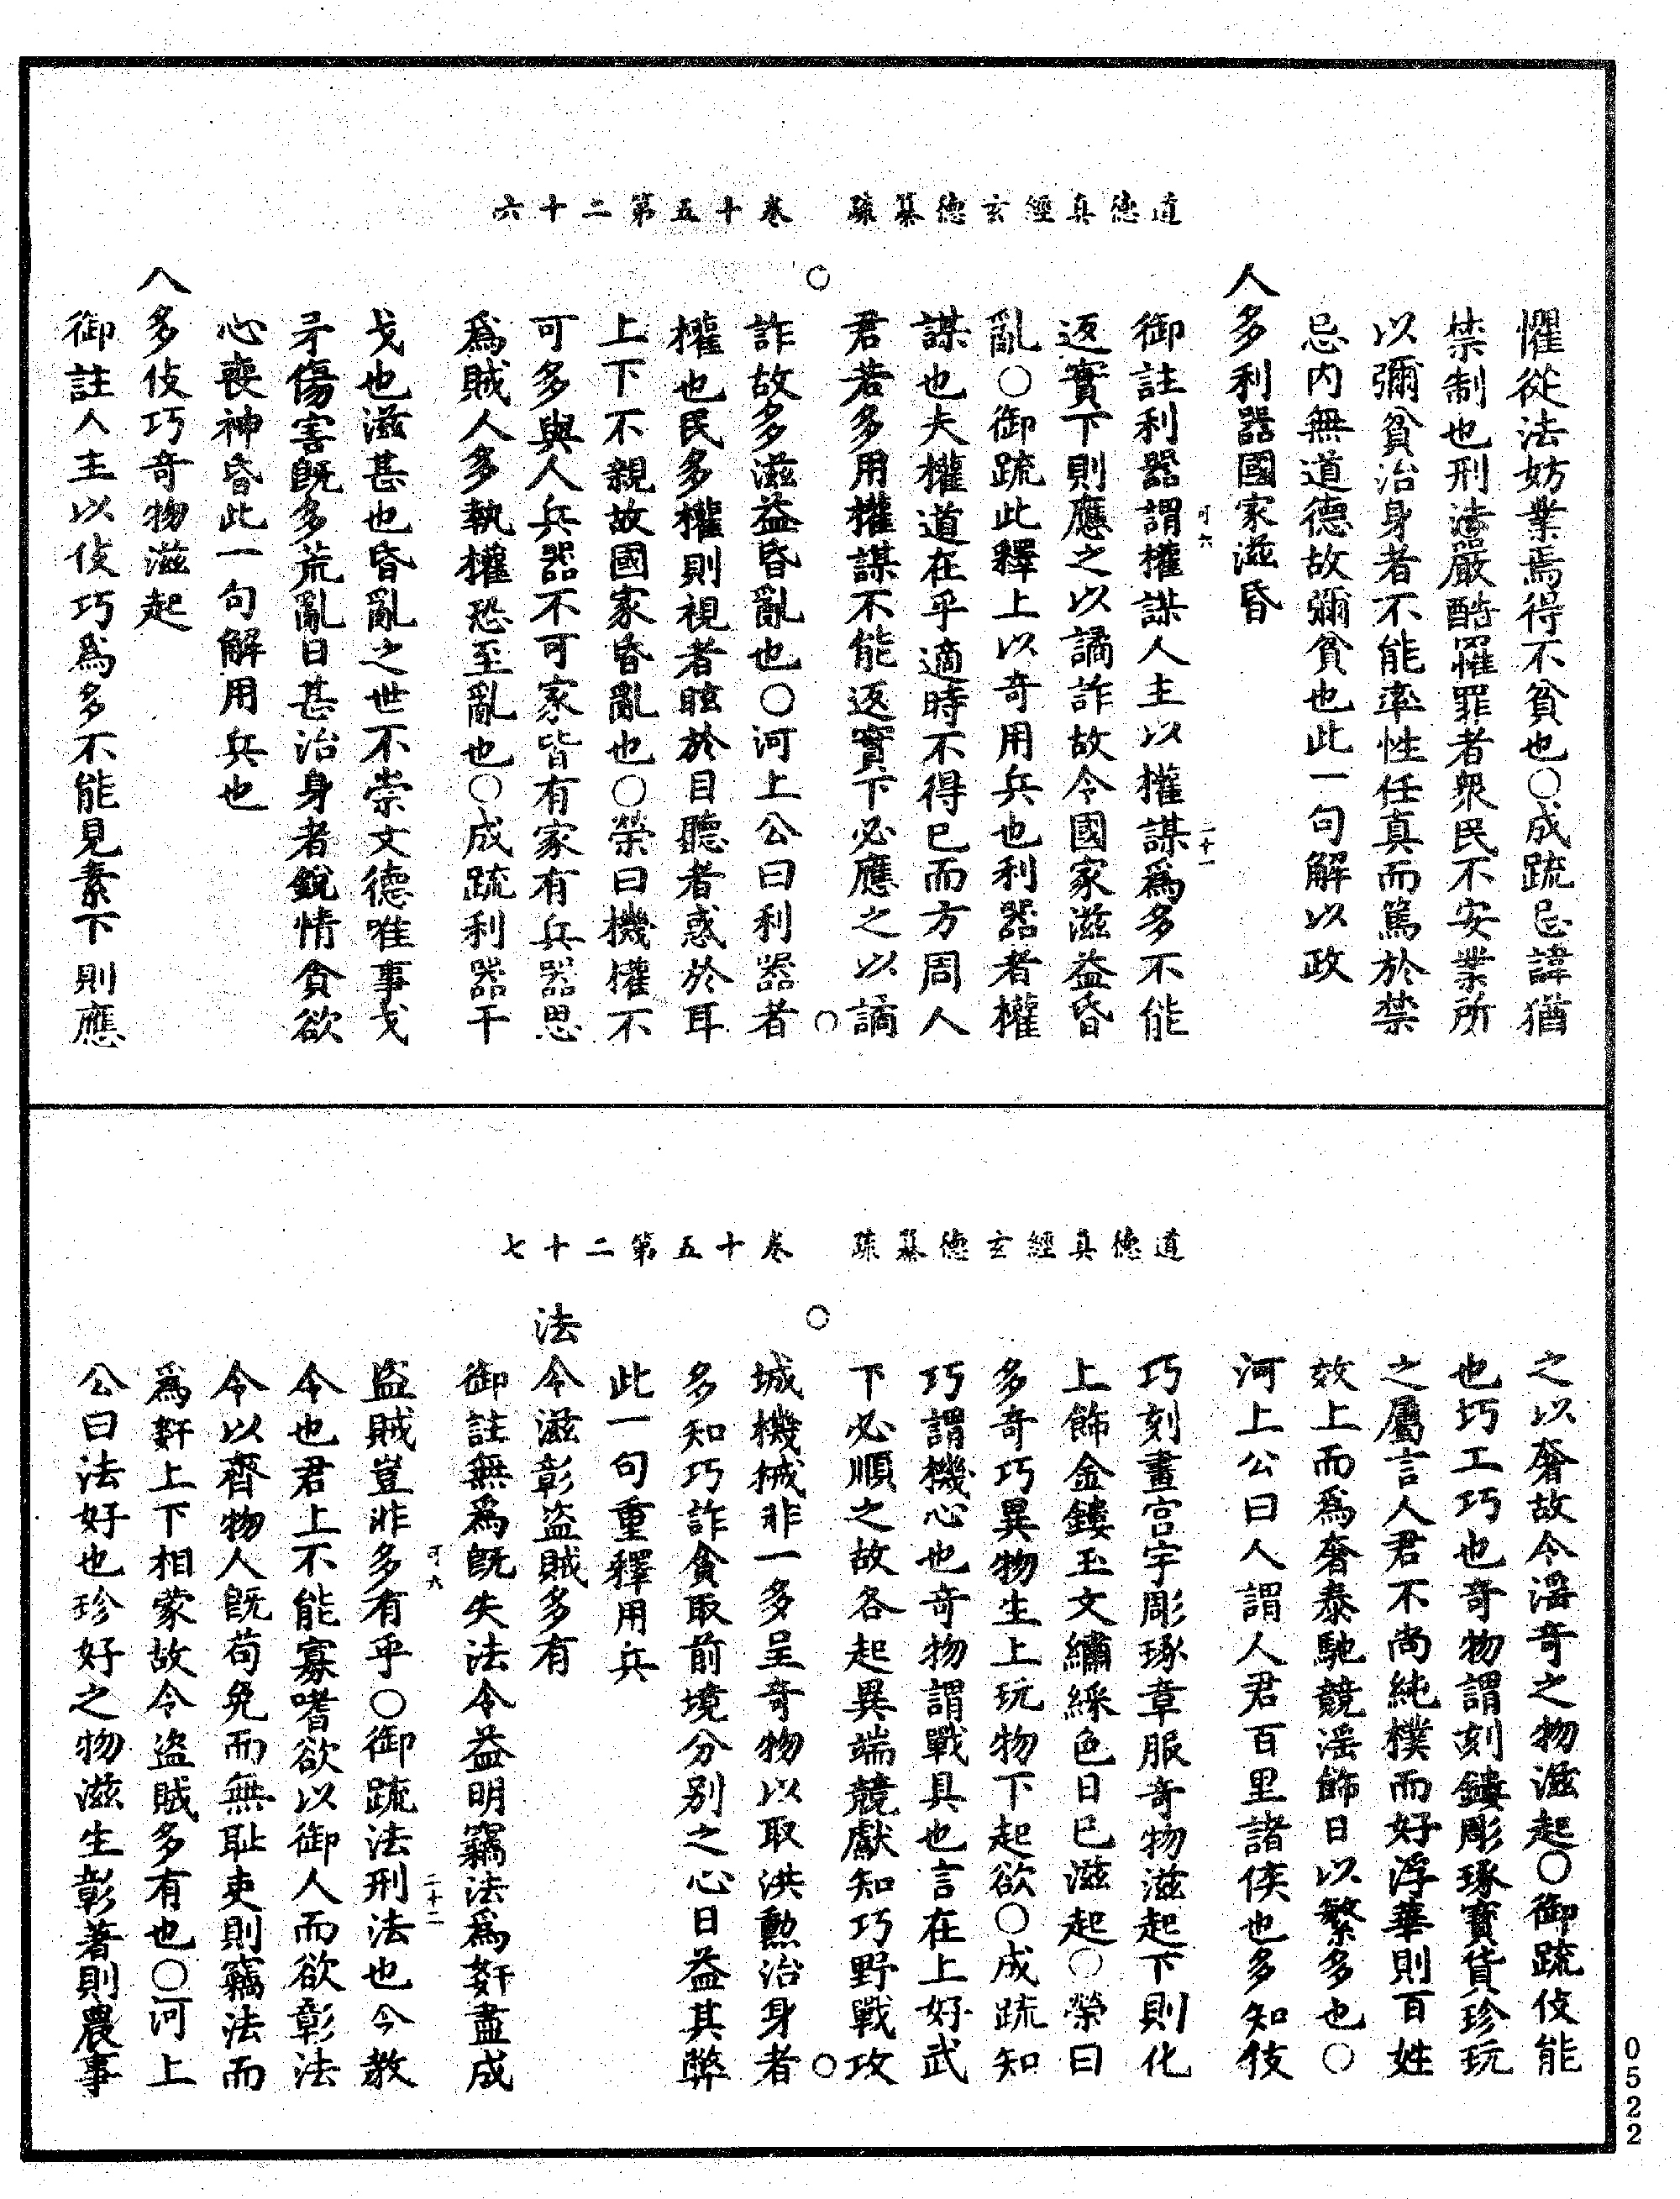 道德真經玄德纂疏　卷十五第二十六
懼從法妨業焉得不貧也○成疏忌諱猶
禁制也刑法嚴酷罹罪者衆民不安業所
以彌貧治身者不能率性任真而篤於禁
忌内無道德故彌貧也此一句解以政
人多利器國家滋昏
御註利器謂權謀人主以權謀爲多不能
可六　二十一
返實下則應之以譎詐故令國家滋益昏
亂○御疏此釋上以奇用兵也利器者權
謀也夫權道在乎適時不得已而方周人
君若多用權謀不能返實下必應之以譎
詐故多滋益昏亂也○河上公曰利器者
權也民多權則視者眩於目聽者惑於耳
上下不親故國家昏亂也○榮曰機權不
可多與人兵器不可家皆有家有兵器思
爲賊人多執權恐至亂也○成疏利器干
戈也滋甚也昏亂之世不崇文德唯事戈
矛傷害旣多荒亂日甚治身者銳情貪欲
心喪神昏此一句解用兵也
人多伎巧奇物滋起
御註人主以伎巧爲多不能見素下則應
道德真經玄德纂疏　卷十五第二十七
之以奢故令淫奇之物滋起○御疏伎能
也巧工巧也奇物謂刻鏤彫琢寶貨珍玩
之屬言人君不尚純樸而好浮華則百姓
效上而爲奢泰馳競淫飾日以繁多也○
河上公曰人謂人君百里諸侯也多知伎
巧刻畫宮宇彫琢章服奇物滋起下則化
上飾金鏤玉文繡綵色日已滋起○榮曰
多奇巧異物生上玩物下起欲○成疏知
巧謂機心也奇物謂戰具也言在上好武
下必順之故各起異端競獻知巧野戰攻
城機械非一多呈奇物以取洪勳治身者
多知巧詐貪取前境分別之心日益其弊
此一句重釋用兵
法令滋彰盜賊多有
御註無爲旣失法令益明竊法爲姧盡成
可六　二十二
盜賊豈非多有乎○御疏法刑法也令教
令也君上不能寡嗜欲以御人而欲彰法
令以齊物人旣苟免而無耻吏則竊法而
爲姧上下相蒙故令盜賊多有也○河上
公曰法好也珍好之物滋生彰著則農事
0522